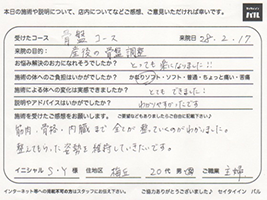 本日の施術や説明について、店内についてなどご感想、ご意見いただければ幸いです。
パル
受けたコース 骨盤コース ご来院日 28.2.17
来院の目的: 産後の骨盤調整
お悩み解決のお力になれそうでしたか? とても楽になりました!!
施術の体へのご負担はいかがでしたか? かなりソフト・ソフト・普通・ちょっと痛い・苦痛
施術による体への変化は実感できましたか? とてもできました!
説明やアドバイスはいかがでしたか? わかりやすかったです
施術を受けたご感想をお願いします。
筋肉、骨格、内臓まで全てが整っていくのがわかりました。
整えてもらった姿勢を維持していきたいです。
イニシャル S・Y 様 住地区 20代 男・女 ご職業 主婦
インターネット等への掲載不可の方はスタッフにお伝え下さい。 ご協力ありがとうございました♪ セイタイイン パル